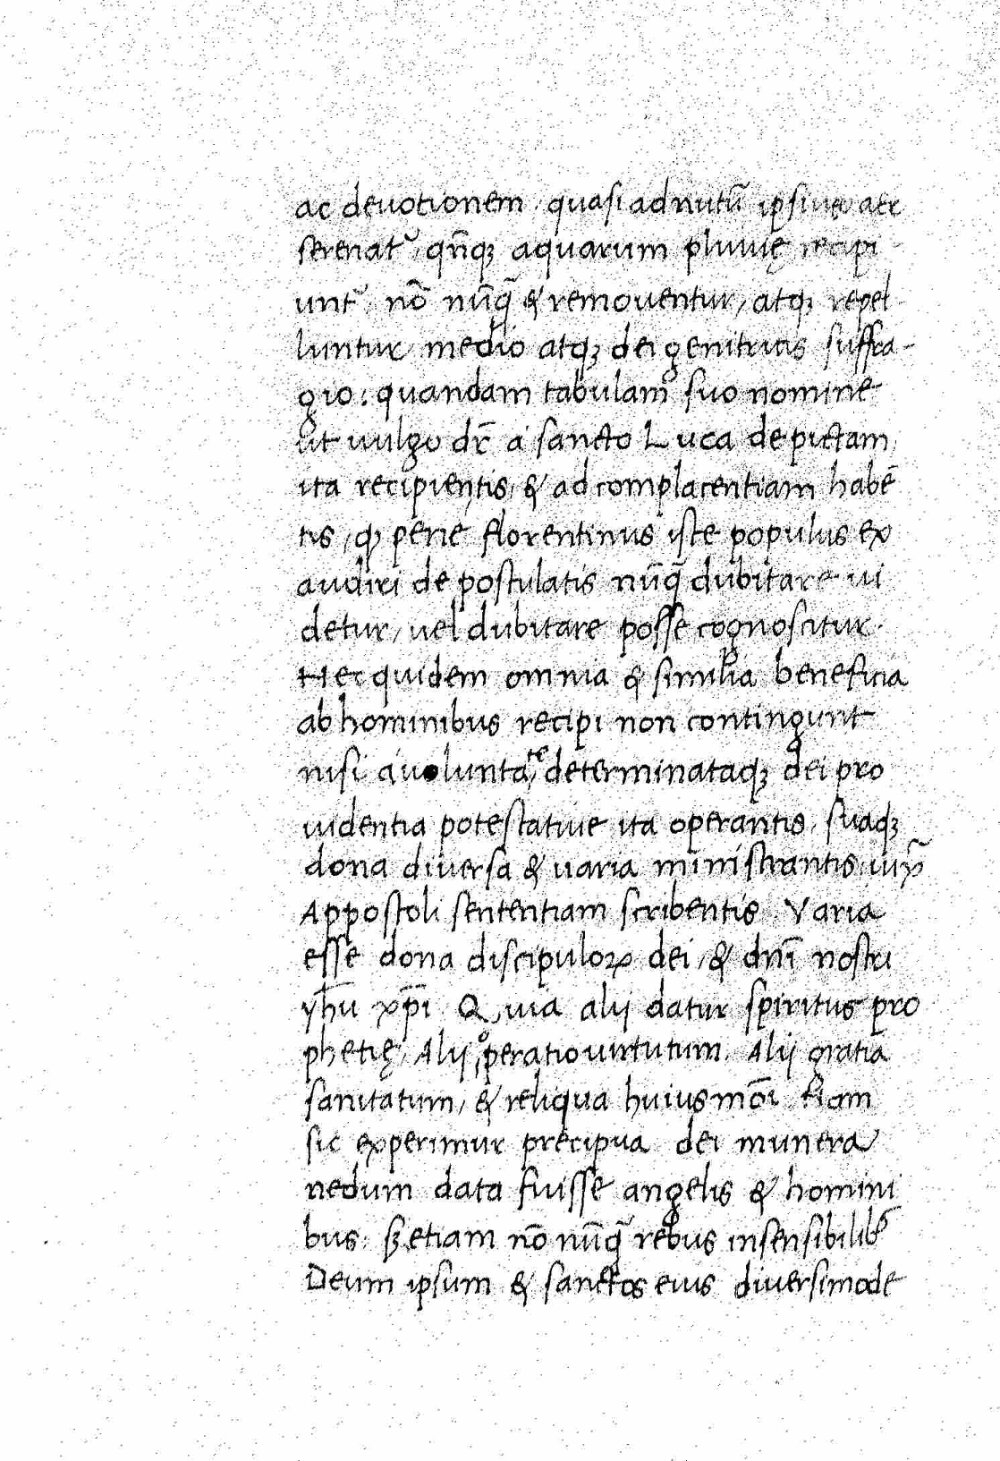 ac deuotionem quasi ad nutū ipsiuꝫ aer
serenat᷑, qn̄qꝫ aquarum pluuię recipi
unt᷑, nō nūq̄ & remouentur, atqꝫ repel
luntur medio atqꝫ dei genitricis suffra-
gio: quandam tabulam suo nomine
ut uulgo dr̄ a sancto Luca depictam
ita recipientis, & ad complacentiam habē
tis, qꝫ pene florentinus iste populus ex
audiri de postulatis nūq̄ dubitare ui
detur, uel dubitare posse cognoscitur.
Hec quidem omnia & similia beneficia
ab hominibus recipi non contingunt
nisi a uoluntate determinataqꝫ dei pro
uidentia potestatiue ita operantis, suaqꝫ
dona diuersa & uaria ministrantis iux̄
Appostoli sententiam scribentis. Varia
esse dona discipuloꝝ dei, & dn̄i nostri
yhū xp̄i Quia alij datur spiritus pro
phetię, Alij operatio uirtutum, Alij gratia
sanitatum, & reliqua huiusmōi. Etiam
sic experimur precipua dei munera
nedum data fuisse angelis & homini
bus, sꝫ etiam nō nūq̄ rebus insensibilibꝰ
Deum ipsum & sanctos eius diuersimode